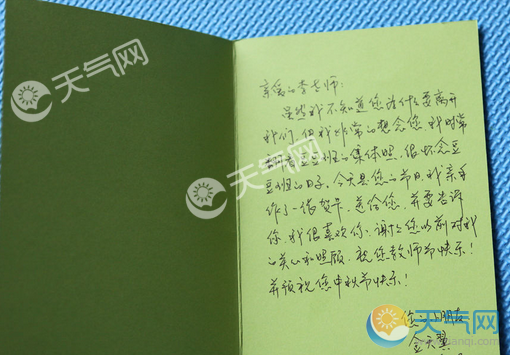 亲爱的李老师：
虽然我不知道您为什么要离开
我们，但我非常的想念您，我时常
翻看豆豆班的集体照，很怀念豆
豆班的日子。今天是您的节日，我亲手
作了一张贺卡，送给您，并要告诉
你，我很喜欢你，谢谢您以前对我
的关心和照顾，祝您教师节快乐！
并预祝您中秋节快乐！
您的小朋友
金天翼
天气网
天气网
天气网
天气网